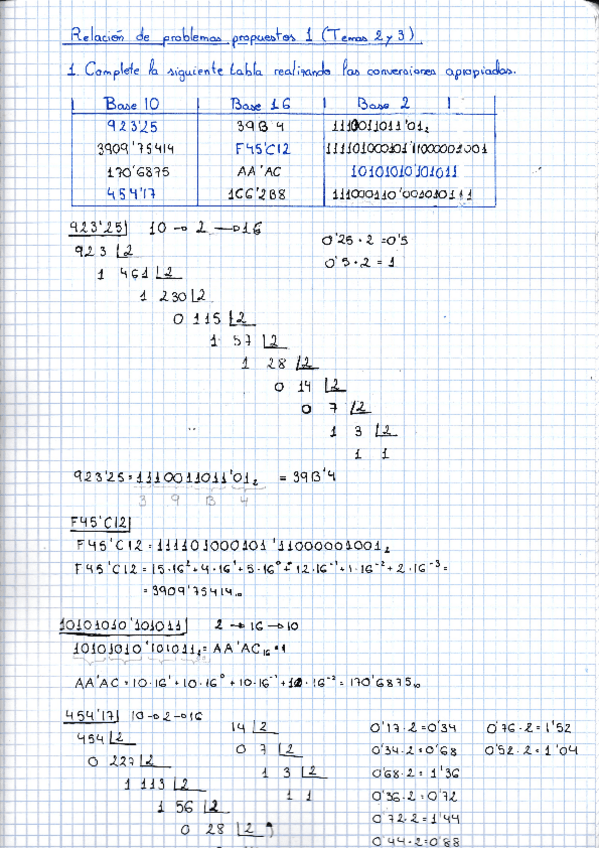 Relación de problemas propuestos 1 (Temas 2 y 3)
1. Complete la siguiente tabla realizando las conversiones apropiadas.
Base 10 Base 16 Base 2
923'25 39B'4 1110011011'01₂
3909'75414 F45'C12 111101000101'11000001001
170'6875 AA'AC 10101010'101011
454'17 1C6'2B8 111000110'001010111
923'25 10 → 2 → 16
923 2 0'25 · 2 = 0'5
1 461 2 0'5 · 2 = 1
1 230 2
0 115 2
1 57 2
1 28 2
0 14 2
0 7 2
1 3 2
1 1
923'25 = 1110011011'01₂ = 39B'4
3 9 B 4
F45'C12
F45'C12 = 111101000101'11000001001₂
F45'C12 = 15·16² + 4·16¹ + 5·16⁰ + 12·16⁻¹ + 1·16⁻² + 2·16⁻³ =
= 3909'75414₁₀
10101010'101011 2 → 16 → 10
10101010'101011₂ = AA'AC₁₆
AA'AC = 10·16¹ + 10·16⁰ + 10·16⁻¹ + 12·16⁻² = 170'6875₁₀
454'17 10 → 2 → 16
454 2 14 2 0'17·2 = 0'34 0'76·2 = 1'52
0 227 2 0 7 2 0'34·2 = 0'68 0'52·2 = 1'04
1 113 2 1 3 2 0'68·2 = 1'36
1 56 2 1 1 0'36·2 = 0'72
0 28 2 0'72·2 = 1'44
0'44·2 = 0'88